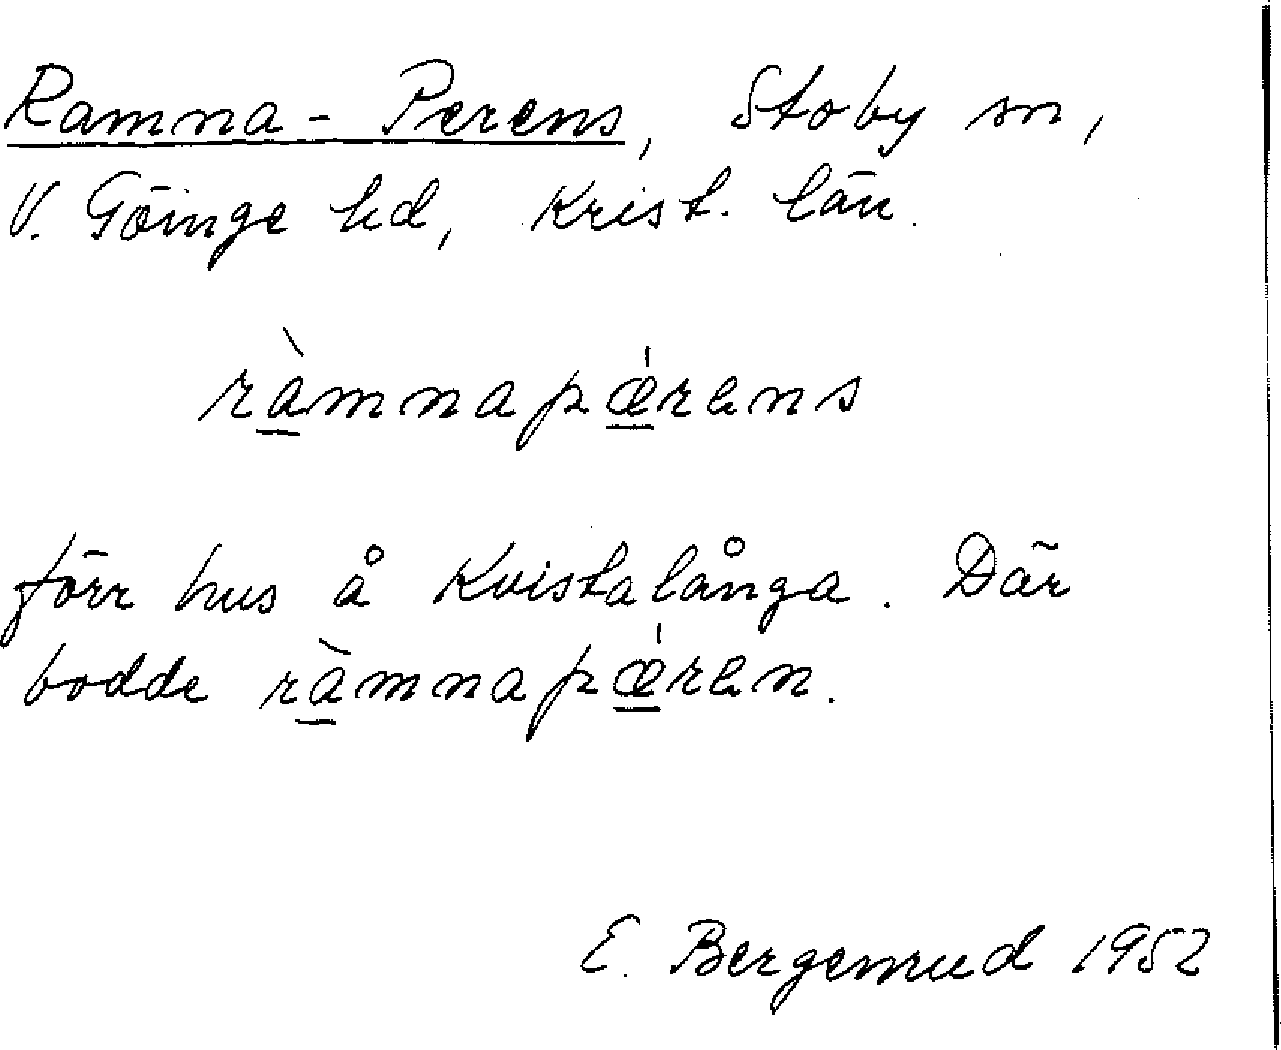 Ramna-Perens, Stoby sn,
V. Göinge hd, Krist. län.
ràmnapǽrens
förr hus å Kvistalånga. Där
bodde ràmnapǽren.
E. Bergemrud 1952